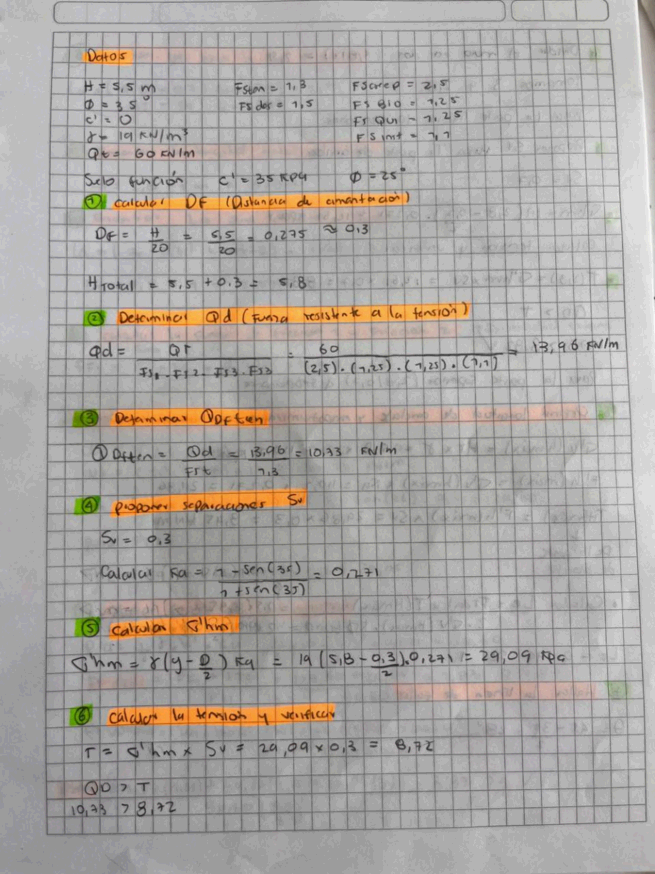 Datos
H = 5,5 m FSten = 1,3 FScreep = 2,5
Ø = 35° FS des = 1,5 FS BIO = 1,25
c' = 0 FS Qui = 1,25
γ = 19 KN/m³ FS inst = 1,1
Qt = 60 KN/m
Suelo función c' = 35 KPa Ø = 25°
① Calcular DF (Distancia de cimentación)
DF = H/20 = 5,5/20 = 0,275 ≈ 0,3
H Total = 5,5 + 0,3 = 5,8
② Determinar Qd (Fuerza resistente a la tensión)
Qd = QT/(FS1 . FS2 . FS3 . FS3) = 60/((2,5) . (1,25) . (1,25) . (1,1)) = 13,96 KN/m
③ Determinar QDften
QDften = Qd/FSt = 13,96/1,3 = 10,73 KN/m
④ proponer separaciones Sv
Sv = 0,3
Calcular Ka = (1 - sen(35))/(1 + sen(35)) = 0,271
⑤ Calcular σ'hm
σ'hm = γ(y - D/2) Ka = 19 (5,8 - 0,3/2).0,271 = 29,09 Kpa
⑥ Calcular la tension y verificar
T = σ'hm x Sv = 29,09 x 0,3 = 8,72
QD > T
10,73 > 8,72